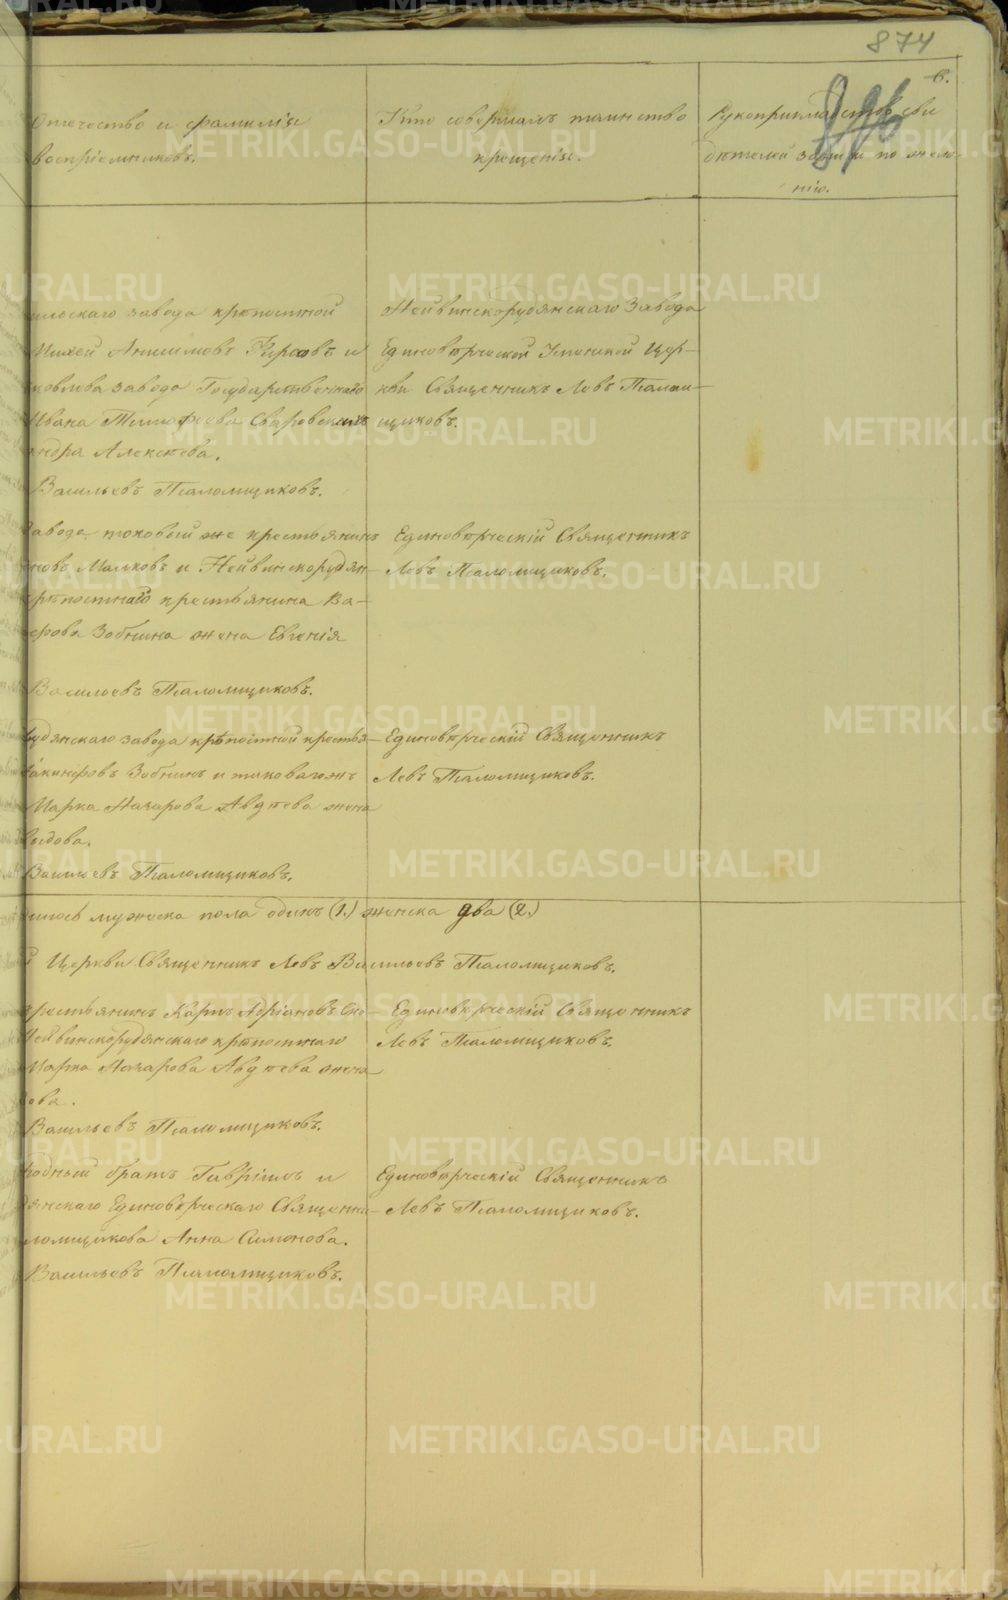 874
Отечество и фамилія
воспріемниковъ.
Кто совершалъ таинство
крещенія.
Рукоприкладство сви
дѣтелей записи по жела-
нію.
завода крѣпостной
Анисимовъ Фирсовъ и
завода Государственнаго
Ивана Тимофеева
Алексѣева.
Васильевъ Пѣаломщиковъ.
Нейвинскорудянскаго Завода
Единовѣрческой Успенской Цер-
кви Священникъ Левъ Псалом-
щиковъ.
завода таковый же крестьянинъ
Малковъ и Нейвинскорудян-
крѣпостнаго крестьянина Ва-
Зобнина жена Евгенія
Васильевъ Псаломщиковъ.
Единовѣрческій Священникъ
Левъ Псаломщиковъ.
рудянскаго завода крѣпостной крестья-
Зобнинъ и таковагожъ
Марка Назарова Авдѣева жена
Васильевъ Псаломщиковъ.
Единовѣрческій Священникъ
Левъ Псаломщиковъ.
мужеска пола одинъ (1.) женска два (2.)
Церкви Священникъ Левъ Васильевъ Псаломщиковъ.
крестьянинъ Карпъ Адріановъ
Нейвинскорудянскаго крѣпостнаго
Марка Назарова Авдѣева жена
Васильевъ Псаломщиковъ.
Единовѣрческій Священникъ
Левъ Псаломщиковъ.
родный братъ Гавріилъ и
дянскаго Единовѣрческаго Священни-
ломщикова Анна Симонова.
Васильевъ Псаломщиковъ.
Единовѣрческій Священникъ
Левъ Псаломщиковъ.
METRIKI.GASO-URAL.RU